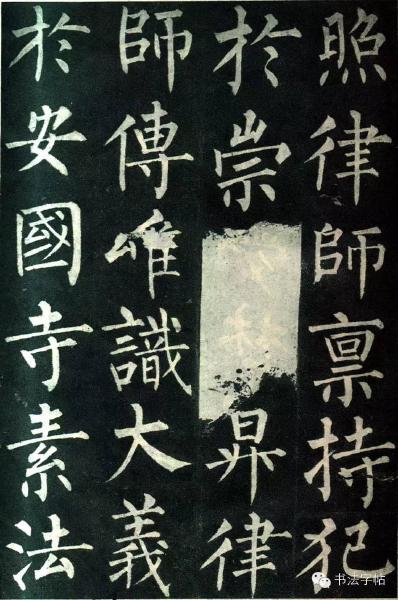 照律師禀持犯
於崇林昇律
師傳唯識大義
於安國寺素法
书法字帖